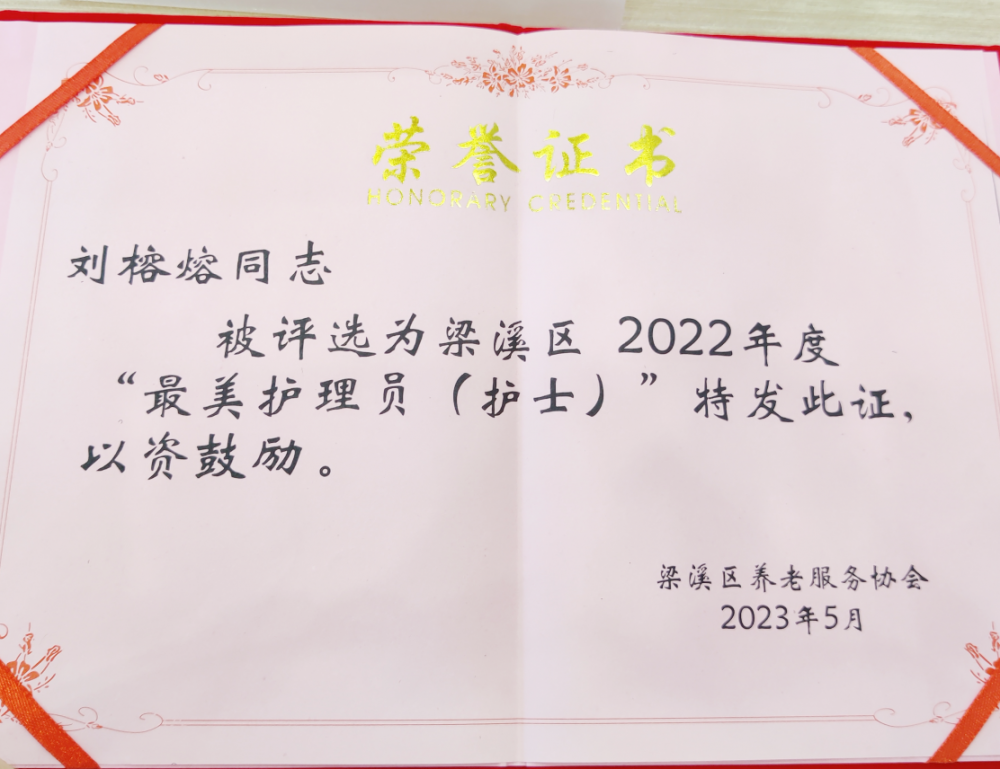 荣誉证书
HONORARY CREDENTIAL
刘榕熔同志
被评选为梁溪区 2022年度
“最美护理员（护士）”特发此证，
以资鼓励。
梁溪区养老服务协会
2023年5月